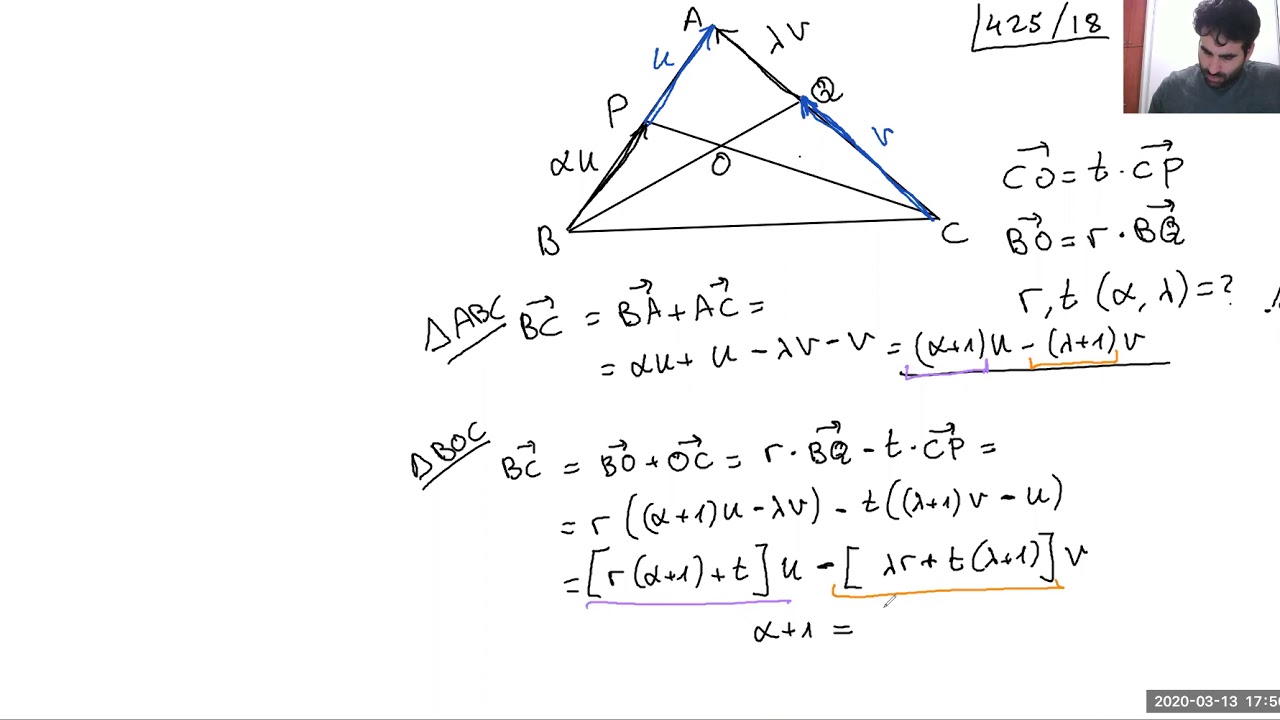 425/18
A
λv
u
P
Q
v
αu
O
B
C
CO⃗ = t · CP⃗
BO⃗ = r · BQ⃗
r, t (α, λ) = ?
ΔABC BC⃗ = BA⃗ + AC⃗ =
= αu + u - λv - v = (α+1)u - (λ+1)v
ΔBOC BC⃗ = BO⃗ + OC⃗ = r · BQ⃗ - t · CP⃗ =
= r((α+1)u - λv) - t((λ+1)v - u)
= [r(α+1) + t]u - [λr + t(λ+1)]v
α+1 =